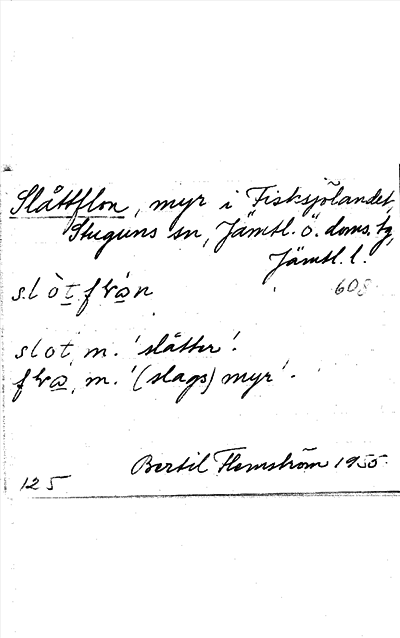 Slåttflon, myr i Fisksjölandet,
Stuguns sn, Jämtl. ö. doms. tg,
Jämtl. l.
608
slòt
slot, m. 'slåtter'.
m. '(slags) myr'.
Bertil Flemström 1955.
125